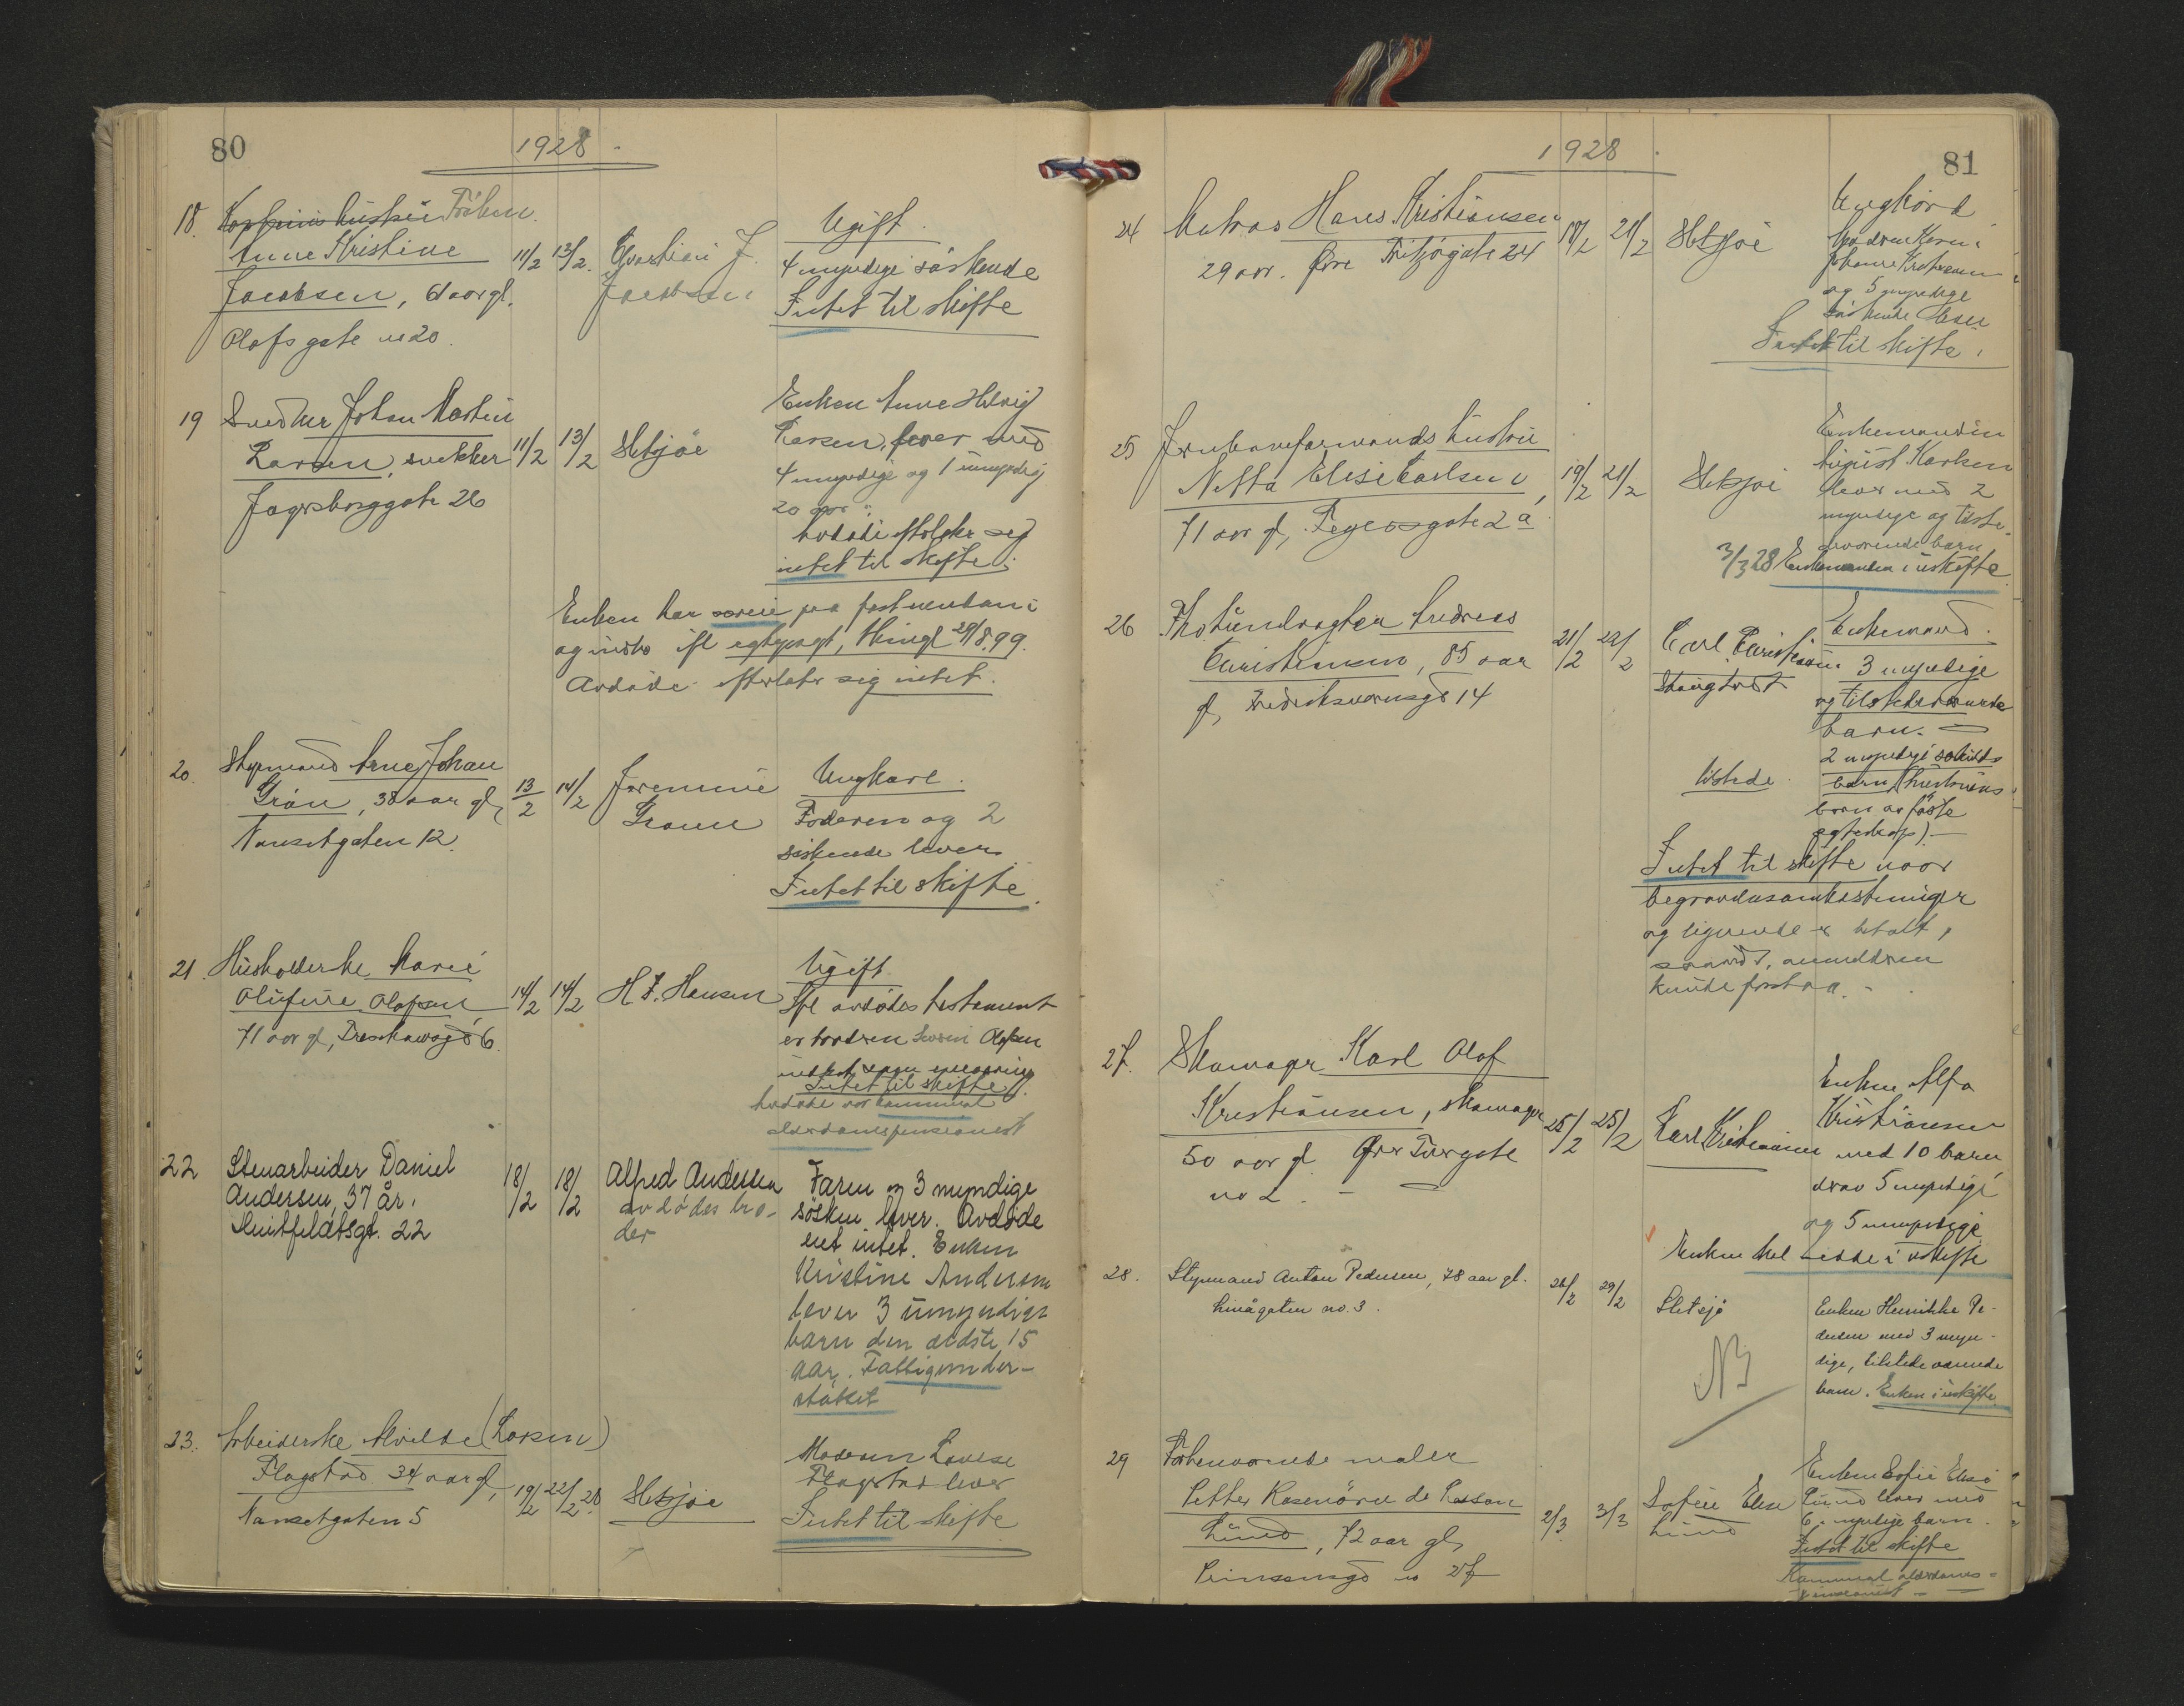 80
1928
18. Frøken
Anne Kristine
Jacobsen, 61 aar gl.
Olafsgate no 20.
11/2 13/2.
J.
Jacobsen
Ugift.
4 myndige søskende
Intet til skifte
19 Snedker Johan Martin
Larsen, snekker
Jegersborggate 26
11/2 13/2
Sletsjøe
Enken Anne Helvig
Larsen, lever med
4 myndige og 1 umyndig
20 aar
Avdøde efterlater sig
intet til skifte.
Enken har særeie paa fast eiendom i
og indbo ifl egtepagt, thingl 29/8.99.
Avdøde efterlater sig intet.
20. Styrmand Arne Johan
Grøn, 38 aar gl,
Nansetgaten 12.
13/2 14/2
Grønn
Ungkarl.
Faderen og 2
søskende lever.
Intet til skifte.
21. Husholderske Marie
Olufine Olafsen
71 aar gl, 6.
14/2 14/2
H F. Hansen
Ugift
Ifl avdødes testament
er broren Olafsen
Intet til skifte.
Avdøde var kommunal
alderdomspensionist
22 Stenarbeider Daniel
Andersen, 37 år.
Huitfeldtsgt. 22
18/2 18/2
Alfred Andersen
avdødes bro-
der
Faren og 3 myndige
søsken lever. Avdøde
eiet intet. Enken
Kristine Andersen
lever 3 umyndige
barn den ældste 15
aar. Fattigunder-
støttet
23. Arbeiderske Alvilde (Larsen)
Flagstad 34 aar gl,
Nansetgaten 5
19/2 22/2 28
Sletsjøe
Moderen Lovise
Flagstad lever
Intet til skifte
81
1928
24 Matros Hans Kristiansen
29 aar. Øvre Fritzøgate 24
18/2 21/2
Sletsjøe
Ungkarl
Moderen Karen
Johanne Kristiansen
og 5 myndige
søskende lever
Intet til skifte.
25 Jernbaneformands hustru
Netta Elise Carlsen
71 aar gl, Feyersgate 2a
19/2 21/2
Sletsjøe
Enkemanden
August Karlsen
lever med 2
myndige og tilste-
deværende barn
3/3 28 Enkemanden i uskifte
26 Andreas
Christiansen, 85 aar
gl, Fredriksvernsgt 14
21/2 22/2
Carl Christiansen
tilstede.
Enkemand.
3 myndige
og tilstedeværende
barn.
2 myndige særkulds
barn (hustruens
barn av første
egteskap).
Intet til skifte naar
begravelsesomkostninger
og lignende er betalt,
saavidt anmelderen
kunde forstaa.
27. Skomaker Karl Olaf
Kristiansen, skomaker
50 aar gl. Øvre Torvgate
no 2.
25/2 25/2
Karl Kristiansen
Enken Alfa
Kristiansen
med 10 barn
derav 5 myndige
og 5 umyndige
Enken vil sidde i uskifte
28. Styrmand Anton Pedersen, 78 aar gl.
Linågaten no. 3.
26/2 29/2
Sletsjø
NB
Enken Henrikke Pe-
dersen med 3 myn-
dige, tilstedeværende
barn. Enken i uskifte.
29 Forhenværende maler
Petter Rosenørn de Lasson
Lund, 72 aar gl,
Prinsensgt no 27
2/3 3/3
Sofie Elise
Lund
Enken Sofie Elise
Lund lever med
6 myndige barn.
Intet til skifte
Kommunal alderdoms-
pensionist